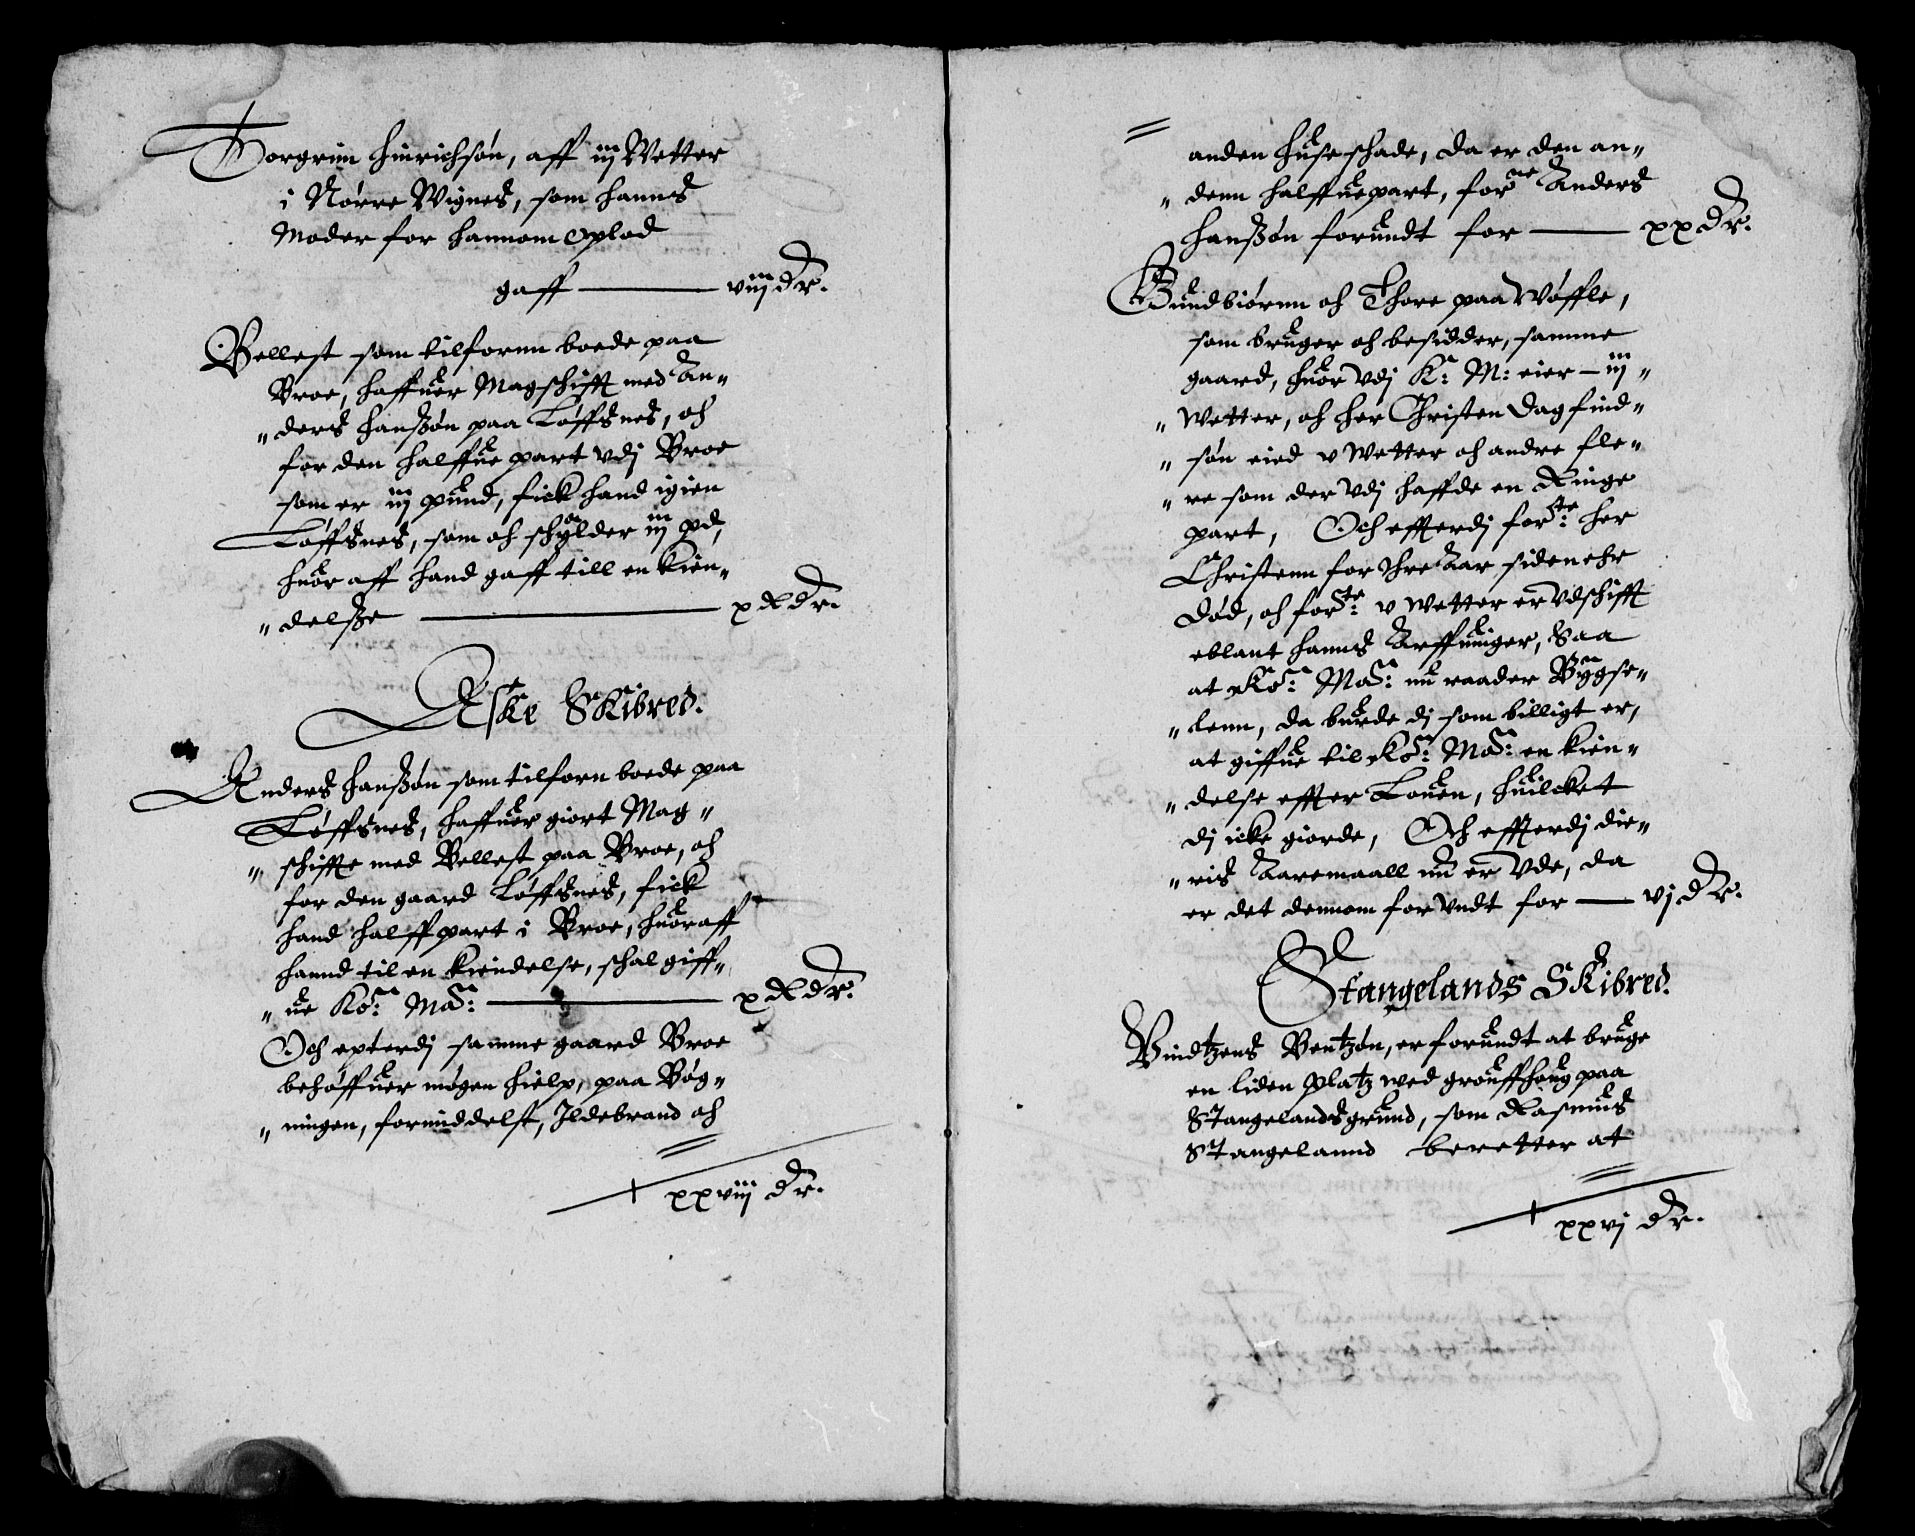 Torgrim Hinrichsøn, aff iij Wetter
i Nørre Wignes, som hanns
Moder for hannom oplod
gaff — viij dr.
Vellest som tilforn boede paa
Broe, haffuer Magschifft med An-
" ders Hanßøn paa Løffsnes, och
for den halffue part vdj Broe
som er iij pund, fick hand igien
Løffsnes, som och schylder iij pd,
huor aff hand gaff till en kien-
" delsße — x Rdr.
Aske Skibred.
Anders Hanßøn som tilforn boede paa
Løffsnes, haffuer giort Mag-
" schiffte med Vellest paa Broe, och
for den gaard Løffsnes, fick
hand halff part i Broe, huoraff
hannd til en kiendelse, schal giff-
" ue Ko: Ma: — x Rdr.
Och epterdj samme gaard Broe
behøffuer møgen hielp, paa Bøg-
" ningen, formiddelst, Ildebrand och
xxviij dr.
anden huse schade, da er den an-
" denn halffuepart, forne Anders
Hanßøn forundt for — xx dr.
Gundbiørnn och Thore paa Wøffle,
som bruger och besidder, samme
gaard, huor vdj K: M: eier — iij "
" Wetter, och her Christen Dagfind-
" søn eied v Wetter och andre fle-
" re som der vdj haffde en Ringe
part, Och effterdj forste: her
Christenn for thre Aar siden ehr
død, och forste: v Wetter er vdschifft
eblant hanns Arffuinger, Saa
at Ko: Ma: nu raader Bygse-
" lenn, da burde dj som billigt er,
at giffue til Ko: Ma: en kien-
" delse effter Louen, huilcket
dj icke giorde, Och effterdj die-
" ris Aaremaall nu er vde, da
er det dennom forvndt for — vj dr.
Stangelands Skibred.
Vindtzens Bentzøn, er forundt at bruge
en liden Platz wed grouffhoug paa
Stangelandsgrund, som Rasmus
Stangelannd beretter at
xxvj dr.